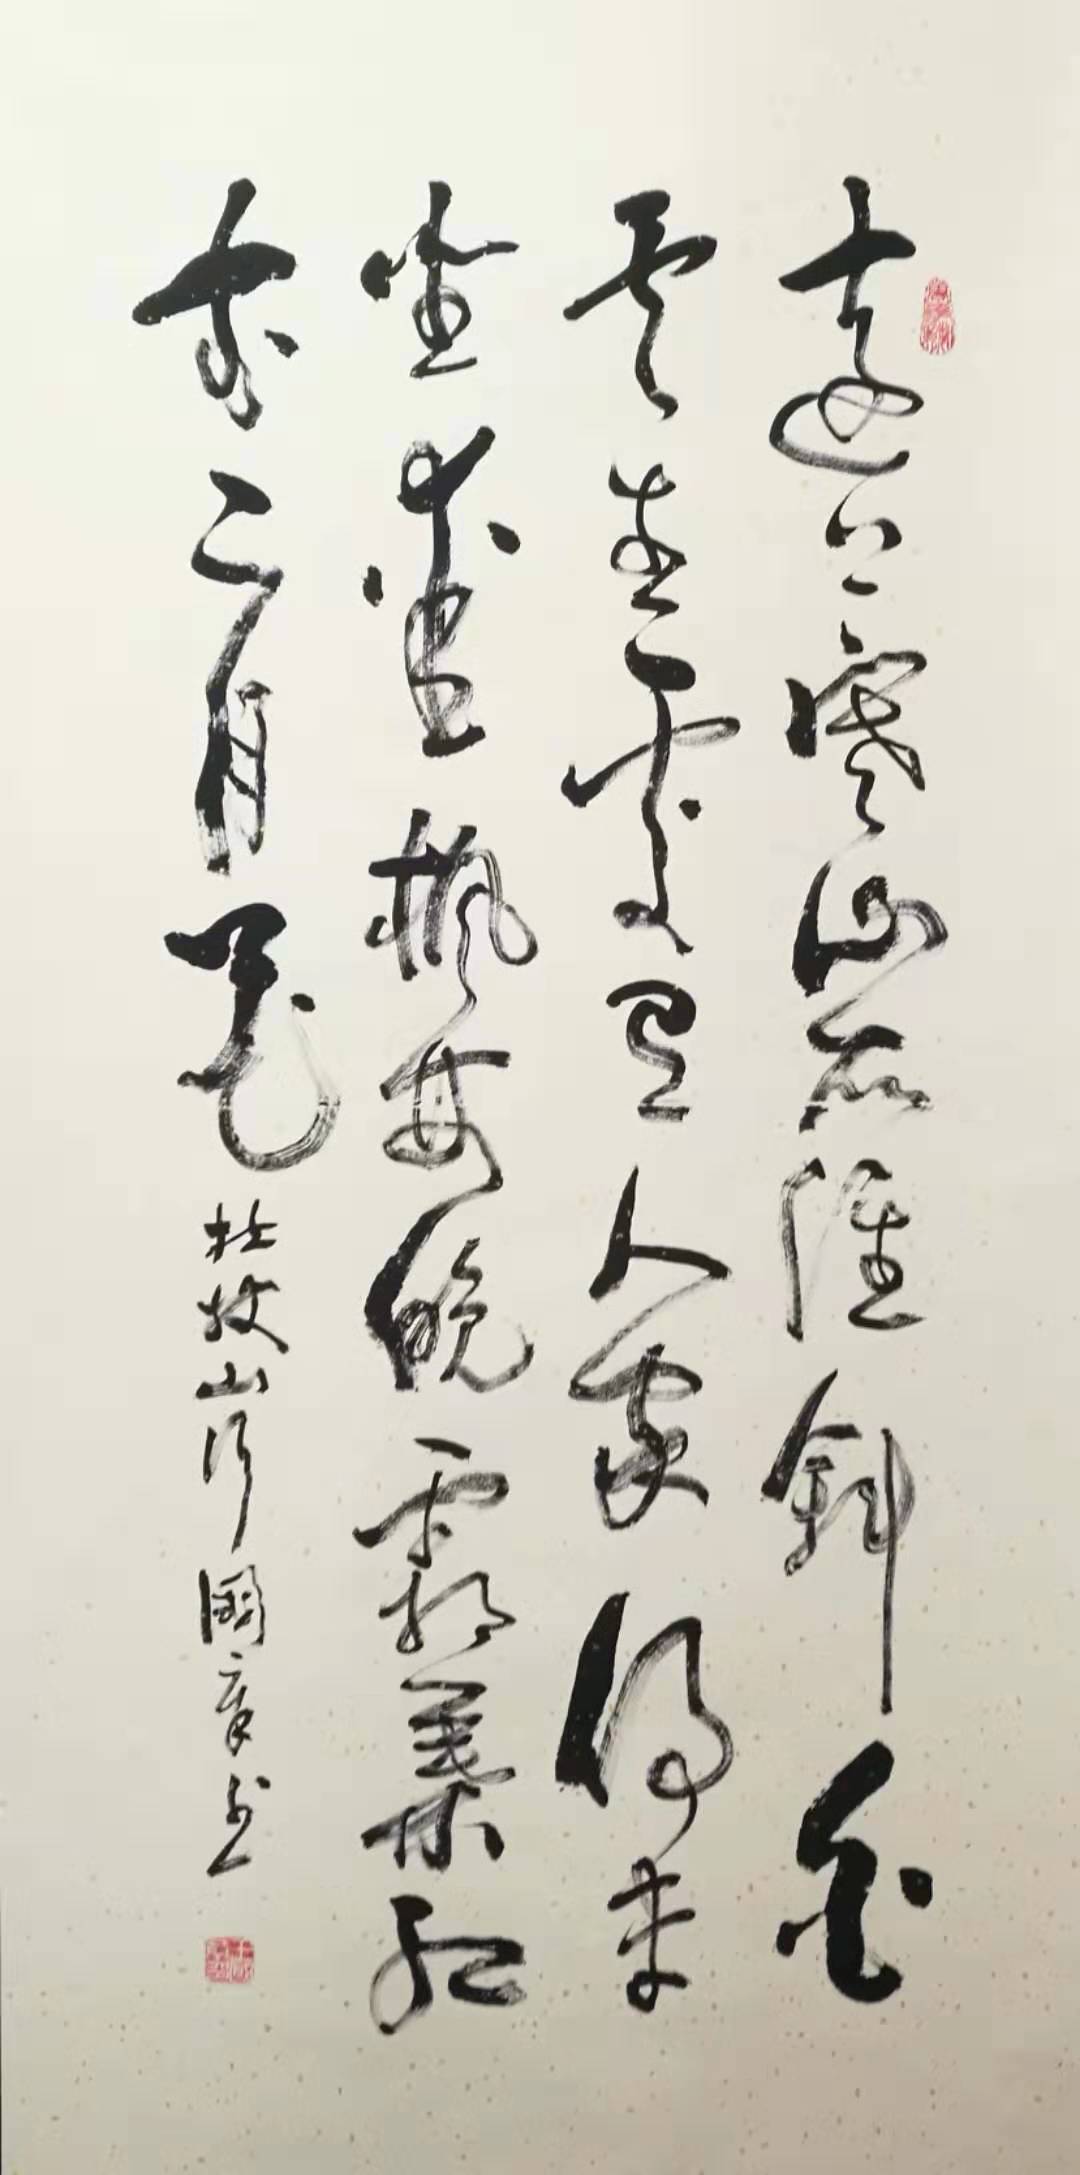 遠上寒山石徑斜白
雲生處有人家停車
坐愛楓林晚霜葉紅
於二月花 杜牧山行 國章書